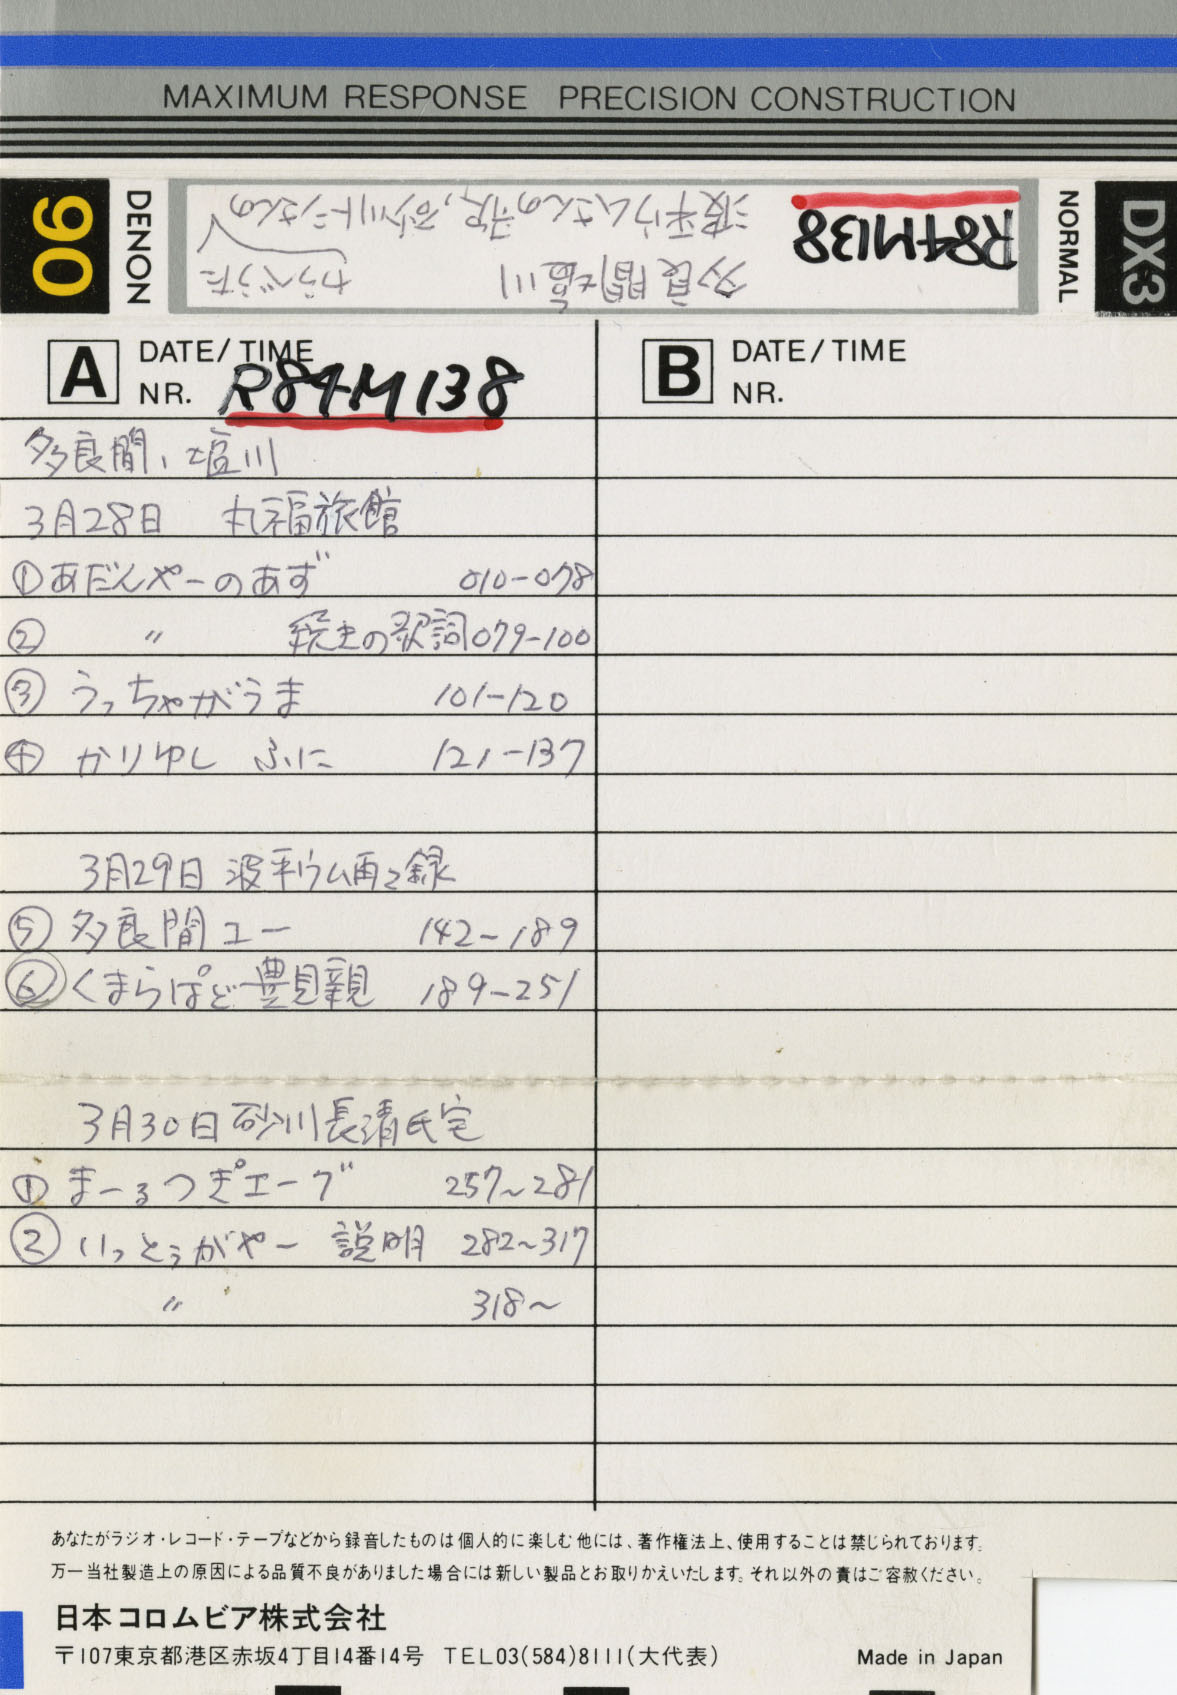 MAXIMUM RESPONSE PRECISION CONSTRUCTION
90
DENON
R84M138
多良間塩川
波平ウムさんの歌,砂川トシさんの
わらべうた
NORMAL
DX3
A DATE/TIME
NR. R84M138
B DATE/TIME
NR.
多良間、塩川
3月28日 丸福旅館
①あだんやーのあず 010-078
② 〃 続きの歌詞079-100
③ うっちゃがうま 101-120
④ かりゆし ふに 121-137
3月29日 波平ウム再々録
⑤ 多良間ユー 142~189
⑥ くまらぱど豊見親 189-251
3月30日 砂川長清氏宅
① まーるつぎエーグ 257~281
② いっとぅがやー 説明 282~317
〃 318~
あなたがラジオ・レコード・テープなどから録音したものは個人的に楽しむ他には、著作権法上、使用することは禁じられております。
万一当社製造上の原因による品質不良がありました場合には新しい製品とお取りかえいたします。それ以外の責はご容赦ください。
日本コロムビア株式会社
〒107東京都港区赤坂4丁目14番14号 TEL03(584)8111(大代表)
Made in Japan